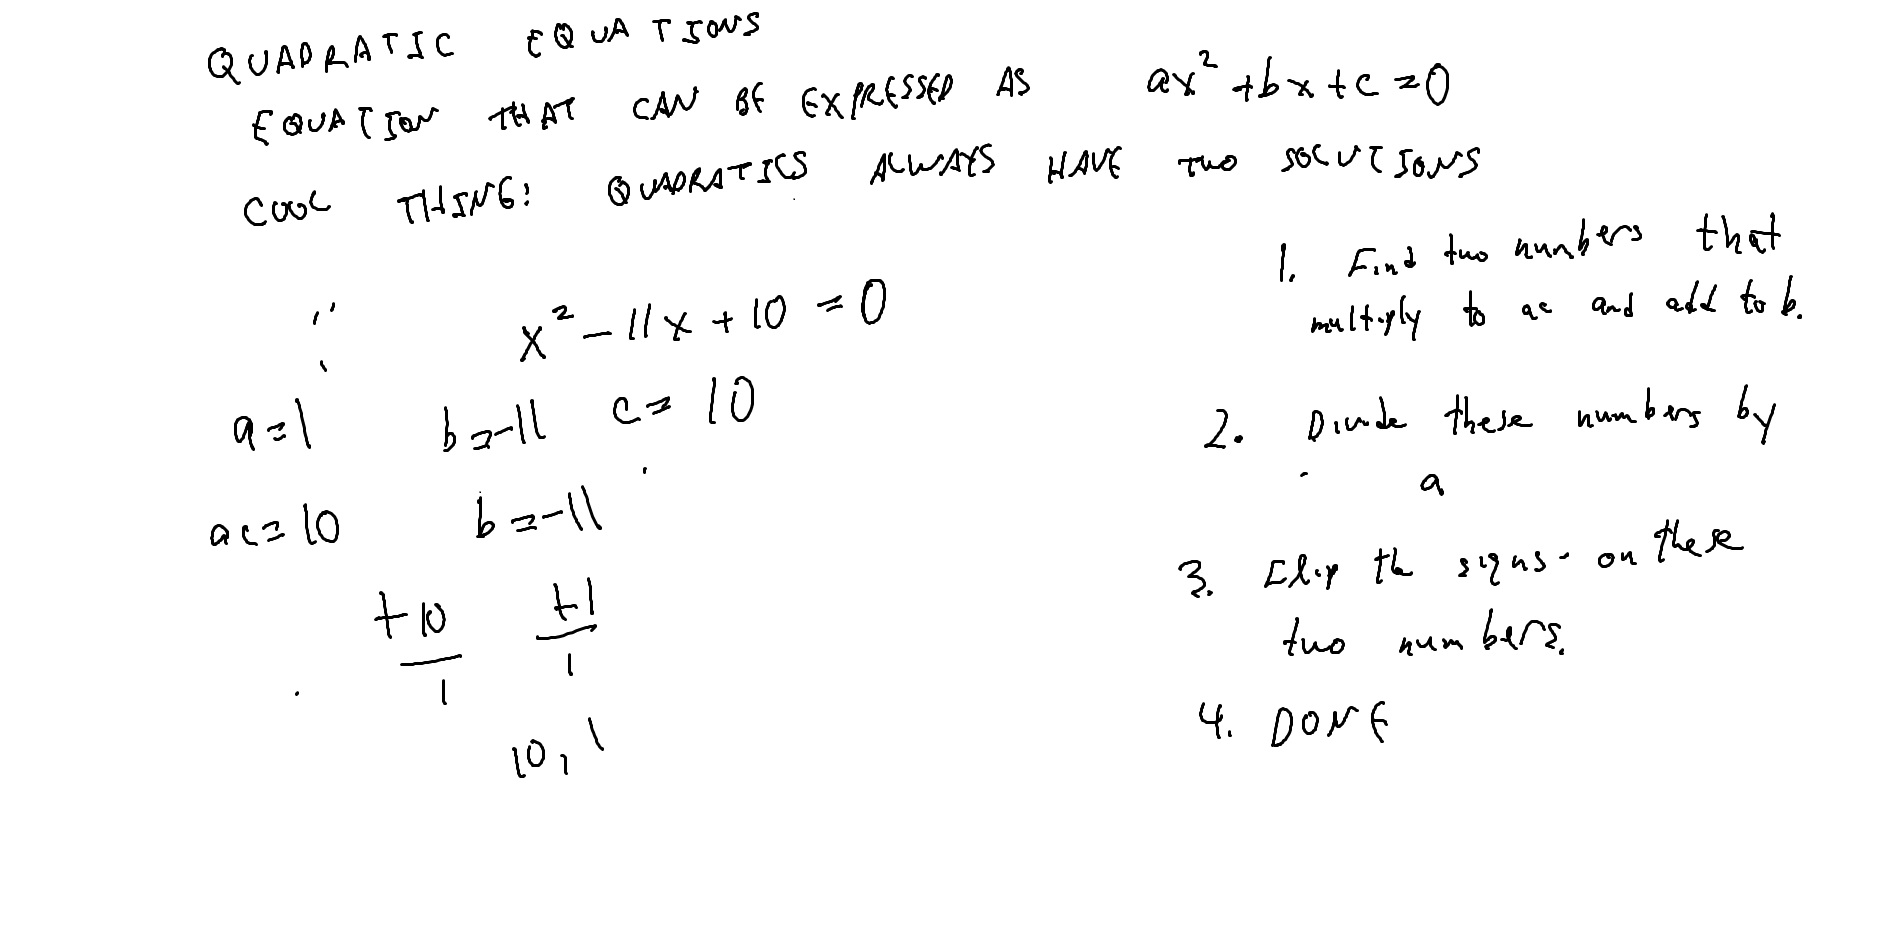 QUADRATIC EQUATIONS
EQUATION THAT CAN BE EXPRESSED AS ax² + bx + c = 0
COOL THING: QUADRATICS ALWAYS HAVE TWO SOLUTIONS
x² - 11x + 10 = 0
a = 1 b = -11 c = 10
ac = 10 b = -11
+10 +1
1 1
10, 1
1. Find two numbers that
multiply to ac and add to b.
2. Divide these numbers by
a
3. Flip the signs on these
two numbers.
4. DONE